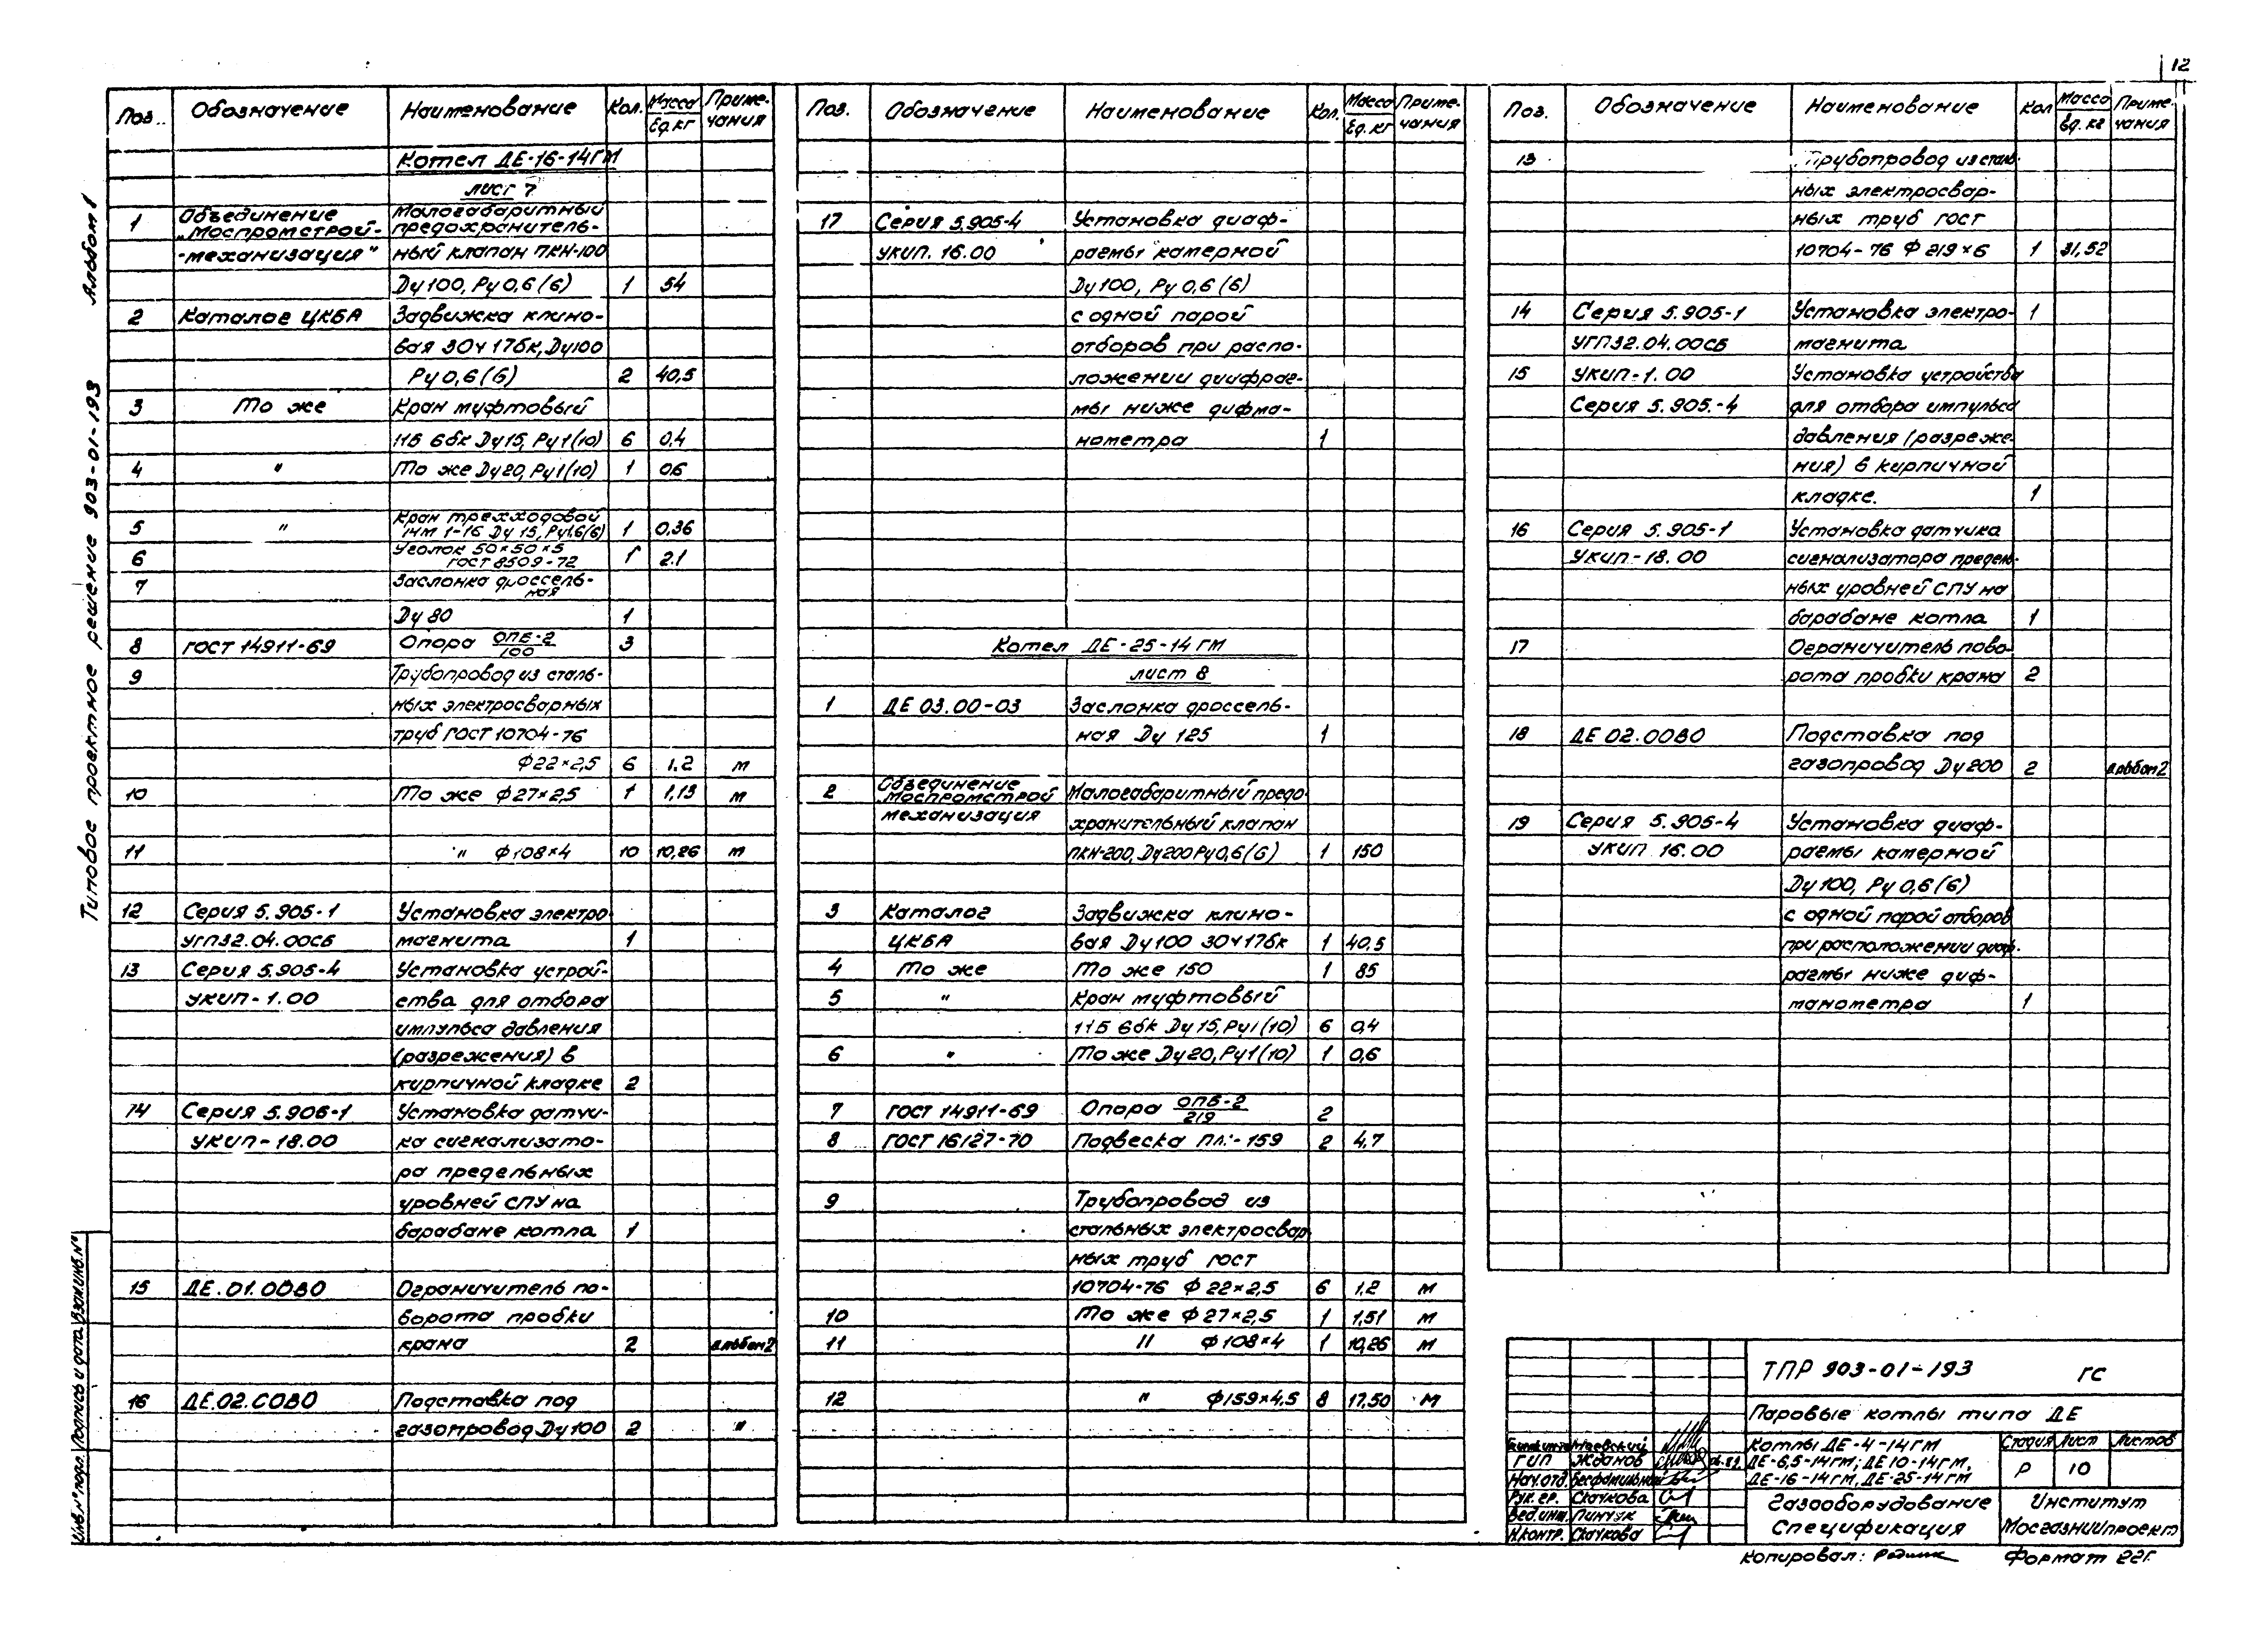 12
Альбом 1
Типовое проектное решение 903-01-193
Поз. Обозначение Наименование Кол. Масса Ед. кг Приме-чания
Котел ДЕ-16-14ГМ
лист 7
1 Объединение Малогабаритный
„Моспромстрой- предохранитель-
-механизация" ный клапан ПКН-100
Ду100, Ру0,6(6) 1 54
2 Каталог ЦКБА Задвижка клино-
вая 30ч17бк, Ду100
Ру0,6(6) 2 40,5
3 То же Кран муфтовый
11Б 6бк Ду15, Ру1(10) 6 0.4
4 " То же Ду20, Ру1(10) 1 0.6
5 " Кран трехходовой
14М 1-16 Ду 15, Ру1,6(6) 1 0.36
6 Уголок 50×50×5
ГОСТ 8509-72 1 2.1
7 Заслонка дроссель-
ная
Ду 80 1
8 ГОСТ 14911-69 Опора ОПБ-2/100 3
9 Трубопровод из сталь-
ных электросварных
труб ГОСТ 10704-76
Ф22×2,5 6 1.2 м
10 То же Ф27×2,5 1 1,13 м
11 " Ф108×4 10 10,26 м
12 Серия 5.905-1 Установка электро
УГП32.04.00СБ магнита 1
13 Серия 5.905-4 Установка устрой-
УКИП-1.00 ства для отбора
импульса давления
(разрежения) в
кирпичной кладке 2
14 Серия 5.906-1 Установка датчи-
УКИП-18.00 ка сигнализато-
ра предельных
уровней СПУ на
барабане котла 1
15 ДЕ.01.00ВО Ограничитель по-
ворота пробки
крана 2 альбом 2
16 ДЕ.02.СОВО Подставка под
газопровод Ду100 2 "
Поз. Обозначение Наименование Кол. Масса Ед. кг Приме-чания
17 Серия 5.905-4 Установка диаф-
УКИП. 16.00 рагмы камерной
Ду100, Ру 0,6(6)
с одной парой
отборов при распо-
ложении диафраг-
мы ниже дифма-
нометра 1
Котел ДЕ-25-14ГМ
лист 8
1 ДЕ 03.00-03 Заслонка дроссель-
ная Ду 125 1
2 Объединение
„Моспромстрой Малогабаритный предо
механизация хранительный клапан
ПКН-200, Ду200 Ру0,6(6) 1 150
3 Каталог Задвижка клино-
ЦКБА вая Ду100 30ч17бк 1 40,5
4 То же То же 150 1 85
5 " Кран муфтовый
11Б 6бк Ду15, Ру1(10) 6 0,4
6 " То же Ду20, Ру1(10) 1 0,6
7 ГОСТ 14911-69 Опора ОПБ-2/219 2
8 ГОСТ 16127-70 Подвеска ПЛ:-159 2 4.7
9 Трубопровод из
стальных электросвар
ных труб ГОСТ
10704-76 Ф22×2,5 6 1,2 м
10 То же Ф27×2,5 1 1,51 м
11 " Ф108×4 1 10,26 м
12 " Ф159×4,5 8 17,50 м
Поз. Обозначение Наименование Кол Масса Ед. кг Приме-чания
13 Трубопровод из сталь-
ных электросвар-
ных труб ГОСТ
10704-76 Ф219×6 1 31,52
14 Серия 5.905-1 Установка электро- 1
УГП32.04.00СБ магнита
15 УКИП-1.00 Установка устройства
Серия 5.905.-4 для отбора импульса
давления (разреже-
ния) в кирпичной
кладке. 1
16 Серия 5.905-1 Установка датчика
УКИП-18.00 сигнализатора предель-
ных уровней СПУ на
барабане котла 1
17 Ограничитель пово-
рота пробки крана 2
18 ДЕ 02.00ВО Подставка под
газопровод Ду200 2 альбом 2
19 Серия 5.905-4 Установка диаф-
УКИП 16.00 рагмы камерной
Ду100, Ру0,6(6)
с одной парой отборов
при расположении диаф-
рагмы ниже диф-
манометра 1
ТПР 903-01-193 ГС
Паровые котлы типа ДЕ
Котлы ДЕ-4-14ГМ
ДЕ-6,5-14ГМ; ДЕ10-14ГМ,
ДЕ-16-14ГМ, ДЕ-25-14ГМ
Стадия Лист Листов
Р 10
Газооборудование
Спецификация
Институт
Мосгазниипроект
Маевский
ГИП Жданов
Нач.отд. Бесфамильный
Рук.гр. Скачкова
Вед.инж. Пинчук
Н.контр. Скачкова
Копировал: Формат 22Г.
Инв.№ подл. Подпись и дата Взам.инв.№